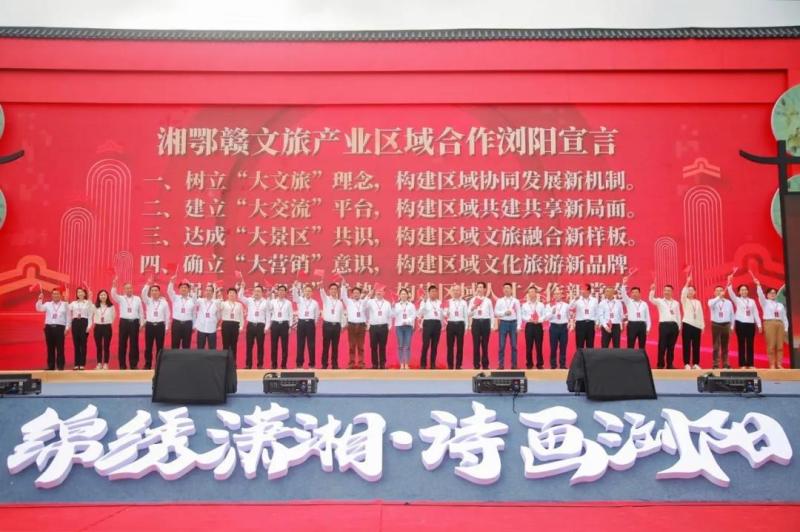 湘鄂赣文旅产业区域合作浏阳宣言
一、树立“大文旅”理念，构建区域协同发展新机制。
二、建立“大交流”平台，构建区域共建共享新局面。
三、达成“大景区”共识，构建区域文旅融合新样板。
四、确立“大营销”意识，构建区域文化旅游新品牌。
构建区域人才合作新
锦绣潇湘·诗画浏阳